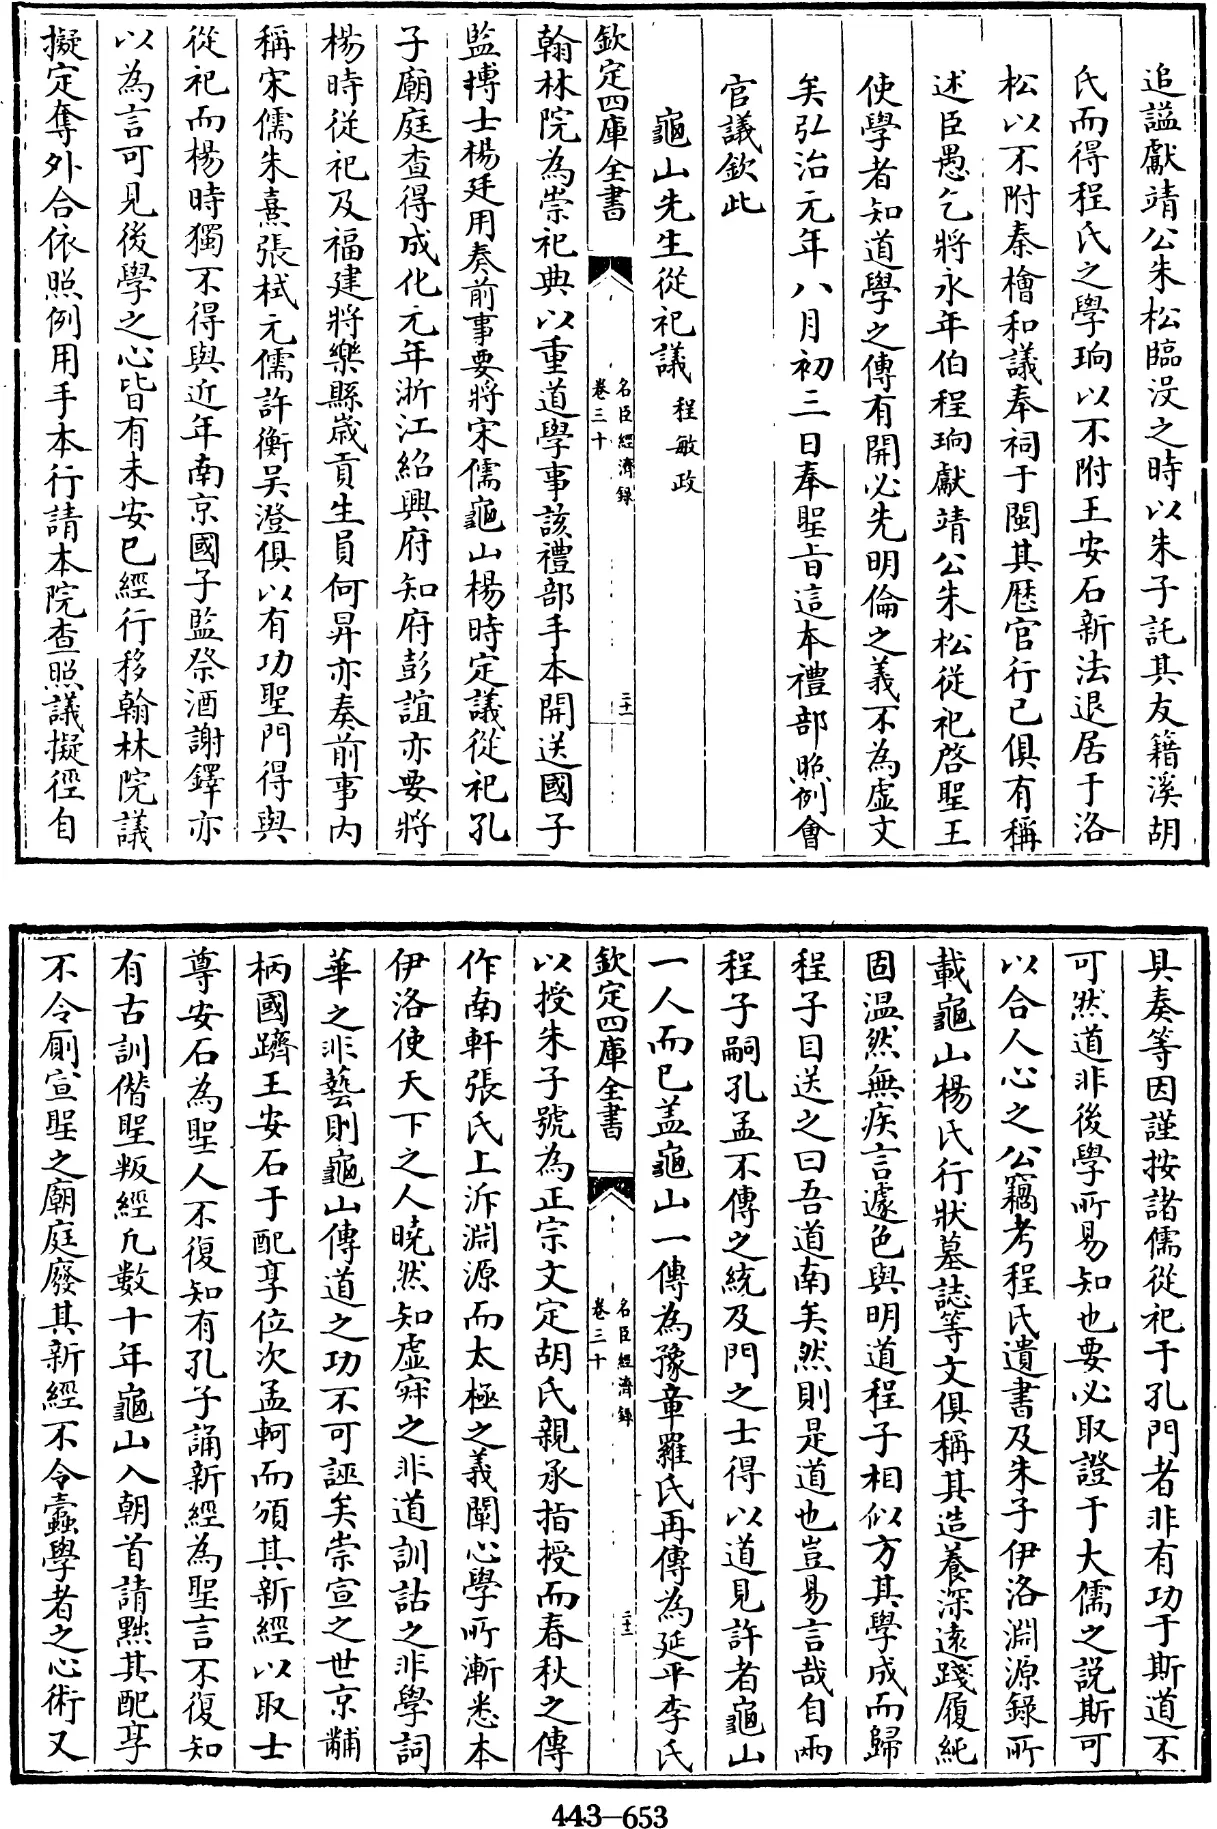 追諡獻靖公朱松臨沒之時以朱子託其友籍溪胡
氏而得程氏之學珦以不附王安石新法退居于洛
松以不附秦檜和議奉祠于閩其歴官行己俱有稱
述臣愚乞將永年伯程珦獻靖公朱松從祀啓聖王
使學者知道學之傳有開必先明倫之義不為虛文
矣弘治元年八月初三日奉聖旨這本禮部照例會
官議欽此
龜山先生從祀議 程敏政
欽定四庫全書 名臣經濟録 卷三十 二十一
翰林院為崇祀典以重道學事該禮部手本開送國子
監博士楊廷用奏前事要將宋儒龜山楊時定議從祀孔
子廟庭查得成化元年浙江紹興府知府彭誼亦要將
楊時從祀及福建將樂縣歲貢生員何昇亦奏前事内
稱宋儒朱熹張栻元儒許衡吴澄俱以有功聖門得與
從祀而楊時獨不得與近年南京國子監祭酒謝鐸亦
以為言可見後學之心皆有未安已經行移翰林院議
擬定奪外合依照例用手本行請本院查照議擬徑自
具奏等因謹按諸儒從祀于孔門者非有功于斯道不
可然道非後學所易知也要必取證于大儒之説斯可
以合人心之公竊考程氏遺書及朱子伊洛淵源錄所
載龜山楊氏行狀墓誌等文俱稱其造養深遠踐履純
固温然無疾言遽色與明道程子相似方其學成而歸
程子目送之曰吾道南矣然則是道也豈易言哉自兩
程子嗣孔孟不傳之統及門之士得以道見許者龜山
一人而已盖龜山一傳為豫章羅氏再傳為延平李氏
欽定四庫全書 名臣經濟録 卷三十 二十二
以授朱子號為正宗文定胡氏親承指授而春秋之傳
作南軒張氏上泝淵源而太極之義闡心學所漸悉本
伊洛使天下之人曉然知虛寂之非道訓詁之非學詞
華之非藝則龜山傳道之功不可誣矣崇宣之世京黼
柄國躋王安石于配享位次孟軻而頒其新經以取士
尊安石為聖人不復知有孔子誦新經為聖言不復知
有古訓僭聖叛經凡數十年龜山入朝首請黜其配享
不令厠宣聖之廟庭廢其新經不令蠹學者之心術又
443-653